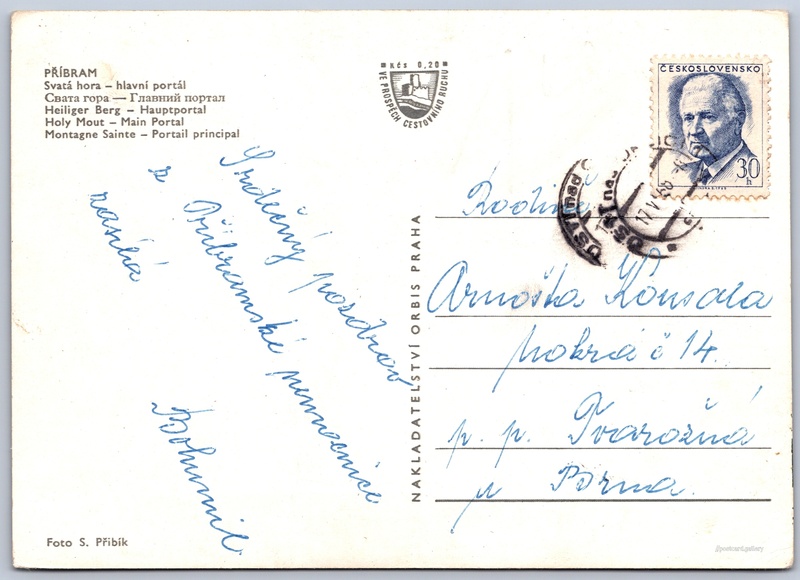 PŘÍBRAM
Svatá hora – hlavní portál
Свата гора — Главний портал
Heiliger Berg – Hauptportal
Holy Mout – Main Portal
Montagne Sainte – Portail principal
Kčs 0,20
VE PROSPĚCH CESTOVNÍHO RUCHU
ČESKOSLOVENSKO
30 h
Srdečný pozdrav
z Příbramské nemocnice
zasílá
Bohumil
NAKLADATELSTVÍ ORBIS PRAHA
Rodině
Arnošta Konsala
Mokrá č 14.
p. p. Tvarožná
u Brna.
Foto S. Přibík